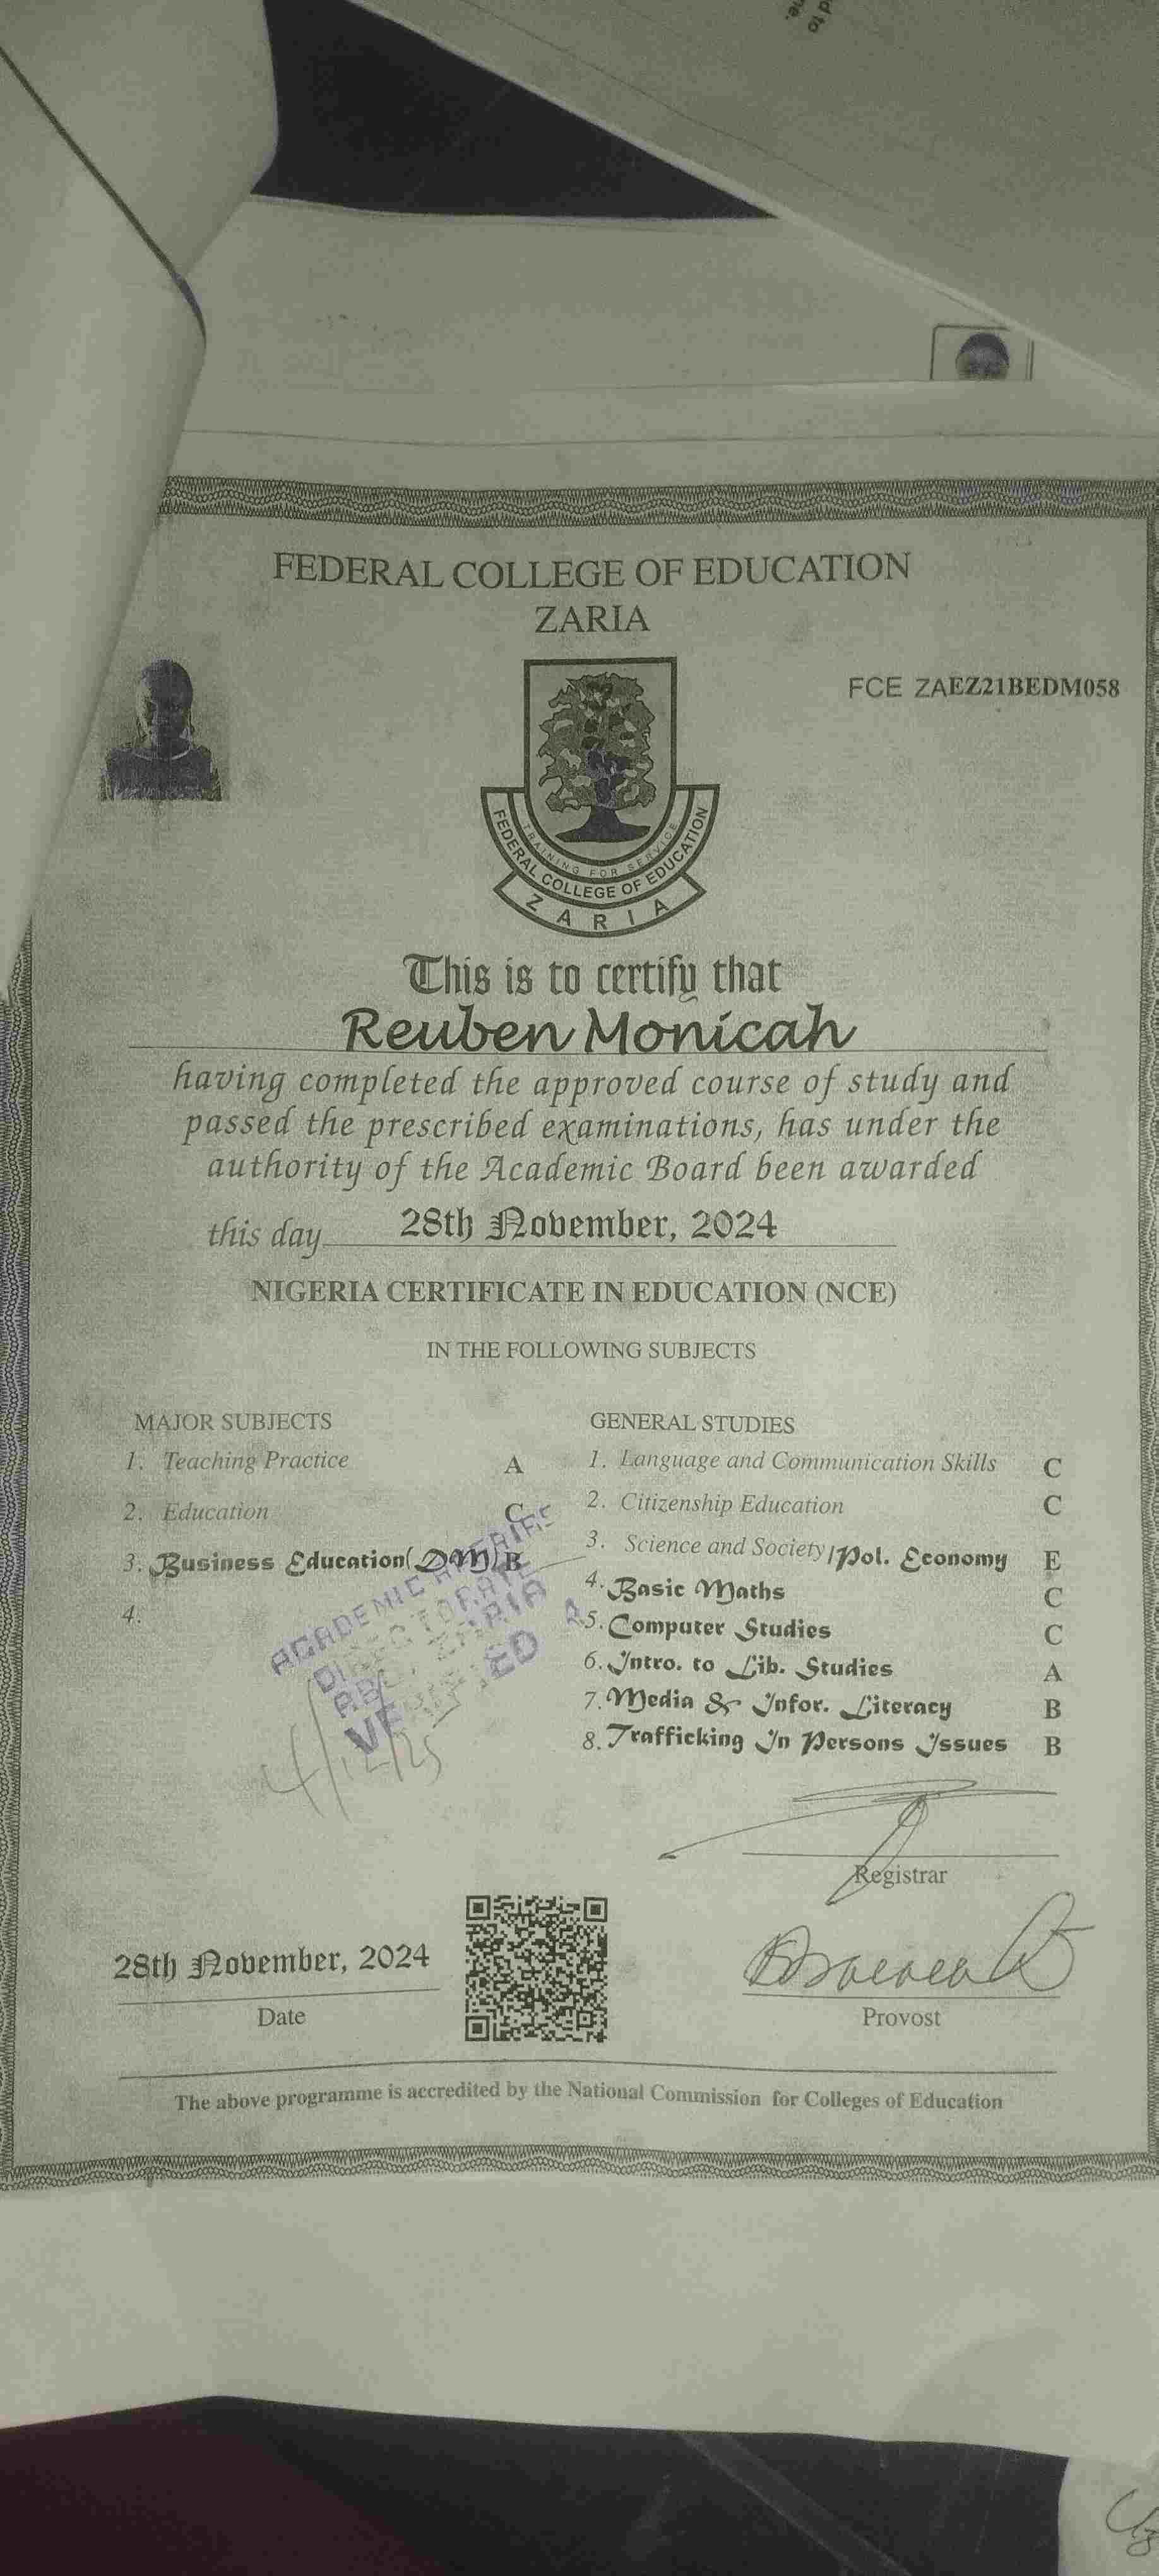 d to
me.
FEDERAL COLLEGE OF EDUCATION
ZARIA
FCE ZAEZ21BEDM058
TRAINING FOR SERVICE
FEDERAL COLLEGE OF EDUCATION
ZARIA
This is to certify that
Reuben Monicah
having completed the approved course of study and
passed the prescribed examinations, has under the
authority of the Academic Board been awarded
this day 28th November, 2024
NIGERIA CERTIFICATE IN EDUCATION (NCE)
IN THE FOLLOWING SUBJECTS
MAJOR SUBJECTS
1. Teaching Practice A
2. Education C
3. Business Education(DM) B
4.
GENERAL STUDIES
1. Language and Communication Skills C
2. Citizenship Education C
3. Science and Society/Pol. Economy E
4. Basic Maths C
5. Computer Studies C
6. Intro. to Lib. Studies A
7. Media & Infor. Literacy B
8. Trafficking In Persons Issues B
ACADEMIC
ZARIA
VERIFIED
4/12/25
Registrar
28th November, 2024
Date
Provost
The above programme is accredited by the National Commission for Colleges of Education